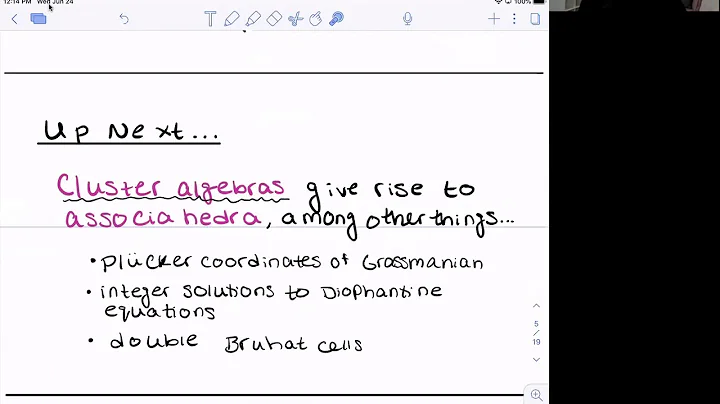 12:14 PM Wed Jun 24
100%
Up Next...
Cluster algebras give rise to
associahedra, among other things...
• plücker coordinates of Grassmanian
• integer solutions to Diophantine
equations
• double Bruhat cells
5
19